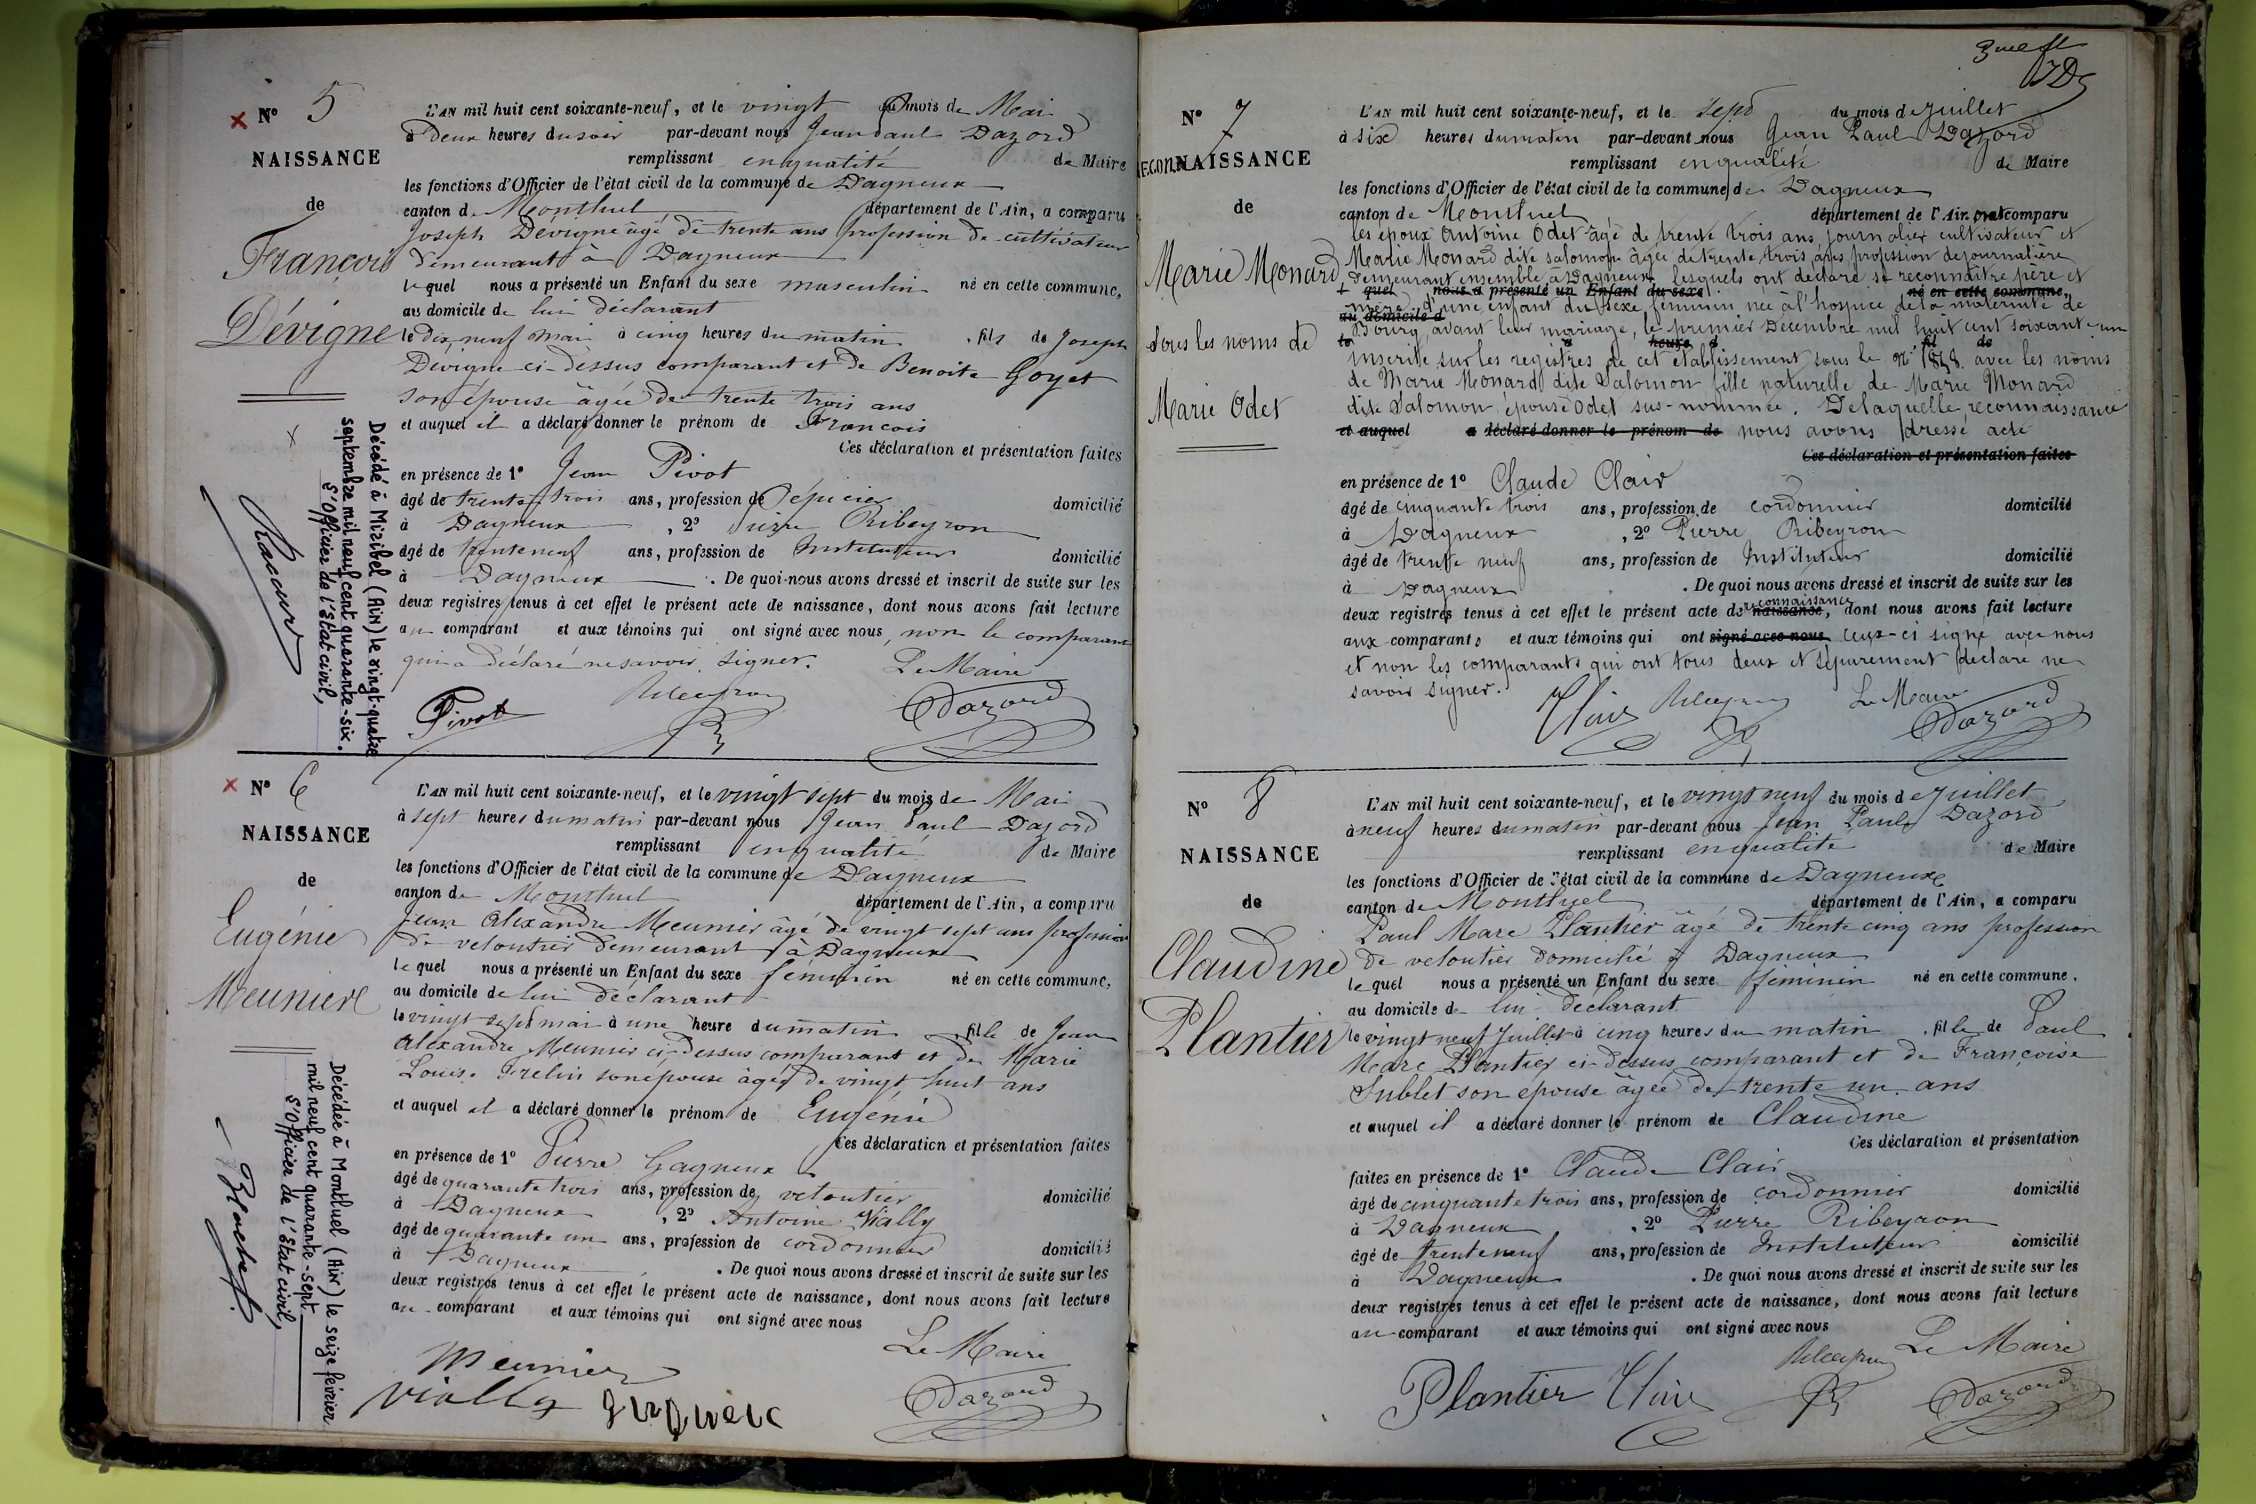 Nº 5
NAISSANCE
de
François
Dévigne
L'AN mil huit cent soixante-neuf, et le vingt du mois de Mai
à Deux heures du soir par-devant nous Jean Paul Dazord
remplissant en qualité de Maire
les fonctions d'Officier de l'état civil de la commune de Dagneux
canton de Montluel département de l'Ain, a comparu
Joseph Dévigne âgé de trente ans profession de cultivateur
demeurant à Dagneux
lequel nous a présenté un Enfant du sexe masculin né en cette commune,
au domicile de lui déclarant
le dix neuf mai à cinq heures du matin, fils de Joseph
Dévigne ci-dessus comparant et de Benoite Goyet
son épouse âgée de trente trois ans
et auquel il a déclaré donner le prénom de François
Ces déclaration et présentation faites
en présence de 1º Jean Pivot
âgé de trente trois ans, profession de épicier domicilié
à Dagneux, 2º Pierre Ribeyron
âgé de trente neuf ans, profession de Instituteur domicilié
à Dagneux. De quoi nous avons dressé et inscrit de suite sur les
deux registres tenus à cet effet le présent acte de naissance, dont nous avons fait lecture
au comparant et aux témoins qui ont signé avec nous, non le comparant
qui a déclaré ne savoir signer. Le Maire
Pivot Ribeyron Dazord
Décédé à Miribel (Ain) le vingt-quatre
septembre mil neuf cent quarante-six.
L'Officier de l'Etat civil,
Nº 6
NAISSANCE
de
Eugénie
Meunier
L'AN mil huit cent soixante-neuf, et le vingt sept du mois de Mai
à sept heures du matin par-devant nous Jean Paul Dazord
remplissant en qualité de Maire
les fonctions d'Officier de l'état civil de la commune de Dagneux
canton de Montluel département de l'Ain, a comparu
Jean Alexandre Meunier âgé de vingt sept ans profession
de veloutier demeurant à Dagneux
lequel nous a présenté un Enfant du sexe féminin né en cette commune,
au domicile de lui déclarant
le vingt sept mai à une heure du matin, fille de Jean
Alexandre Meunier ci-dessus comparant et de Marie
Louise Frelin son épouse âgée de vingt huit ans
et auquel il a déclaré donner le prénom de Eugénie
Ces déclaration et présentation faites
en présence de 1º Pierre Gagneux
âgé de quarante trois ans, profession de veloutier domicilié
à Dagneux, 2º Antoine Vially
âgé de quarante un ans, profession de cordonnier domicilié
à Dagneux. De quoi nous avons dressé et inscrit de suite sur les
deux registres tenus à cet effet le présent acte de naissance, dont nous avons fait lecture
au comparant et aux témoins qui ont signé avec nous
Le Maire
Meunier
Vially Dazord
Décédée à Montluel (Ain) le seize février
mil neuf cent quarante-sept
L'Officier de l'Etat civil,
Nº 7
RECONNAISSANCE
de
Marie Monard
sous les noms de
Marie Odet
L'AN mil huit cent soixante-neuf, et le sept du mois de juillet
à six heures du matin par-devant nous Jean Paul Dazord
remplissant en qualité de Maire
les fonctions d'Officier de l'état civil de la commune de Dagneux
canton de Montluel département de l'Ain ont comparu
les époux Antoine Odet âgé de trente trois ans, journalier cultivateur et
Marie Monard dite Salomon âgée de trente trois ans profession de journalière
demeurant ensemble à Dagneux, lesquels ont déclaré se reconnaître père et
quel nous a présenté un Enfant du sexe né en cette commune,
mère d'une enfant du sexe féminin née à l'hospice de la maternité de
au domicile d
Bourg, avant leur mariage, le premier Décembre mil huit cent soixante-un
le à heure d fil de
inscrite sur les registres de cet établissement sous le nº 1878 avec les noms
de Marie Monard dite Salomon fille naturelle de Marie Monard
dite Salomon, épouse Odet sus-nommée. De laquelle reconnaissance
et auquel a déclaré donner le prénom de nous avons dressé acte
Ces déclaration et présentation faites
en présence de 1º Claude Clair
âgé de cinquante trois ans, profession de cordonnier domicilié
à Dagneux, 2º Pierre Ribeyron
âgé de trente neuf ans, profession de Instituteur domicilié
à Dagneux. De quoi nous avons dressé et inscrit de suite sur les
deux registres tenus à cet effet le présent acte de naissance reconnaissance, dont nous avons fait lecture
aux comparants et aux témoins qui ont signé avec nous ceux-ci signé avec nous
et non les comparants qui ont tous deux et séparément déclaré ne
savoir signer. Le Maire
Clair Ribeyron Dazord
Nº 8
NAISSANCE
de
Claudine
Plantier
L'AN mil huit cent soixante-neuf, et le vingt neuf du mois de juillet
à neuf heures du matin par-devant nous Jean Paul Dazord
remplissant en qualité de Maire
les fonctions d'Officier de l'état civil de la commune de Dagneux
canton de Montluel département de l'Ain, a comparu
Paul Marc Plantier âgé de trente cinq ans profession
de veloutier domicilié à Dagneux
lequel nous a présenté un Enfant du sexe féminin né en cette commune,
au domicile de lui déclarant
le vingt neuf Juillet à cinq heures du matin, fille de Paul
Marc Plantier ci-dessus comparant et de Françoise
Sublet son épouse âgée de trente un ans
et auquel il a déclaré donner le prénom de Claudine
Ces déclaration et présentation
faites en présence de 1º Claude Clair
âgé de cinquante trois ans, profession de cordonnier domicilié
à Dagneux, 2º Pierre Ribeyron
âgé de trente neuf ans, profession de Instituteur domicilié
à Dagneux. De quoi nous avons dressé et inscrit de suite sur les
deux registres tenus à cet effet le présent acte de naissance, dont nous avons fait lecture
au comparant et aux témoins qui ont signé avec nous
Le Maire
Plantier Clair Ribeyron Dazord